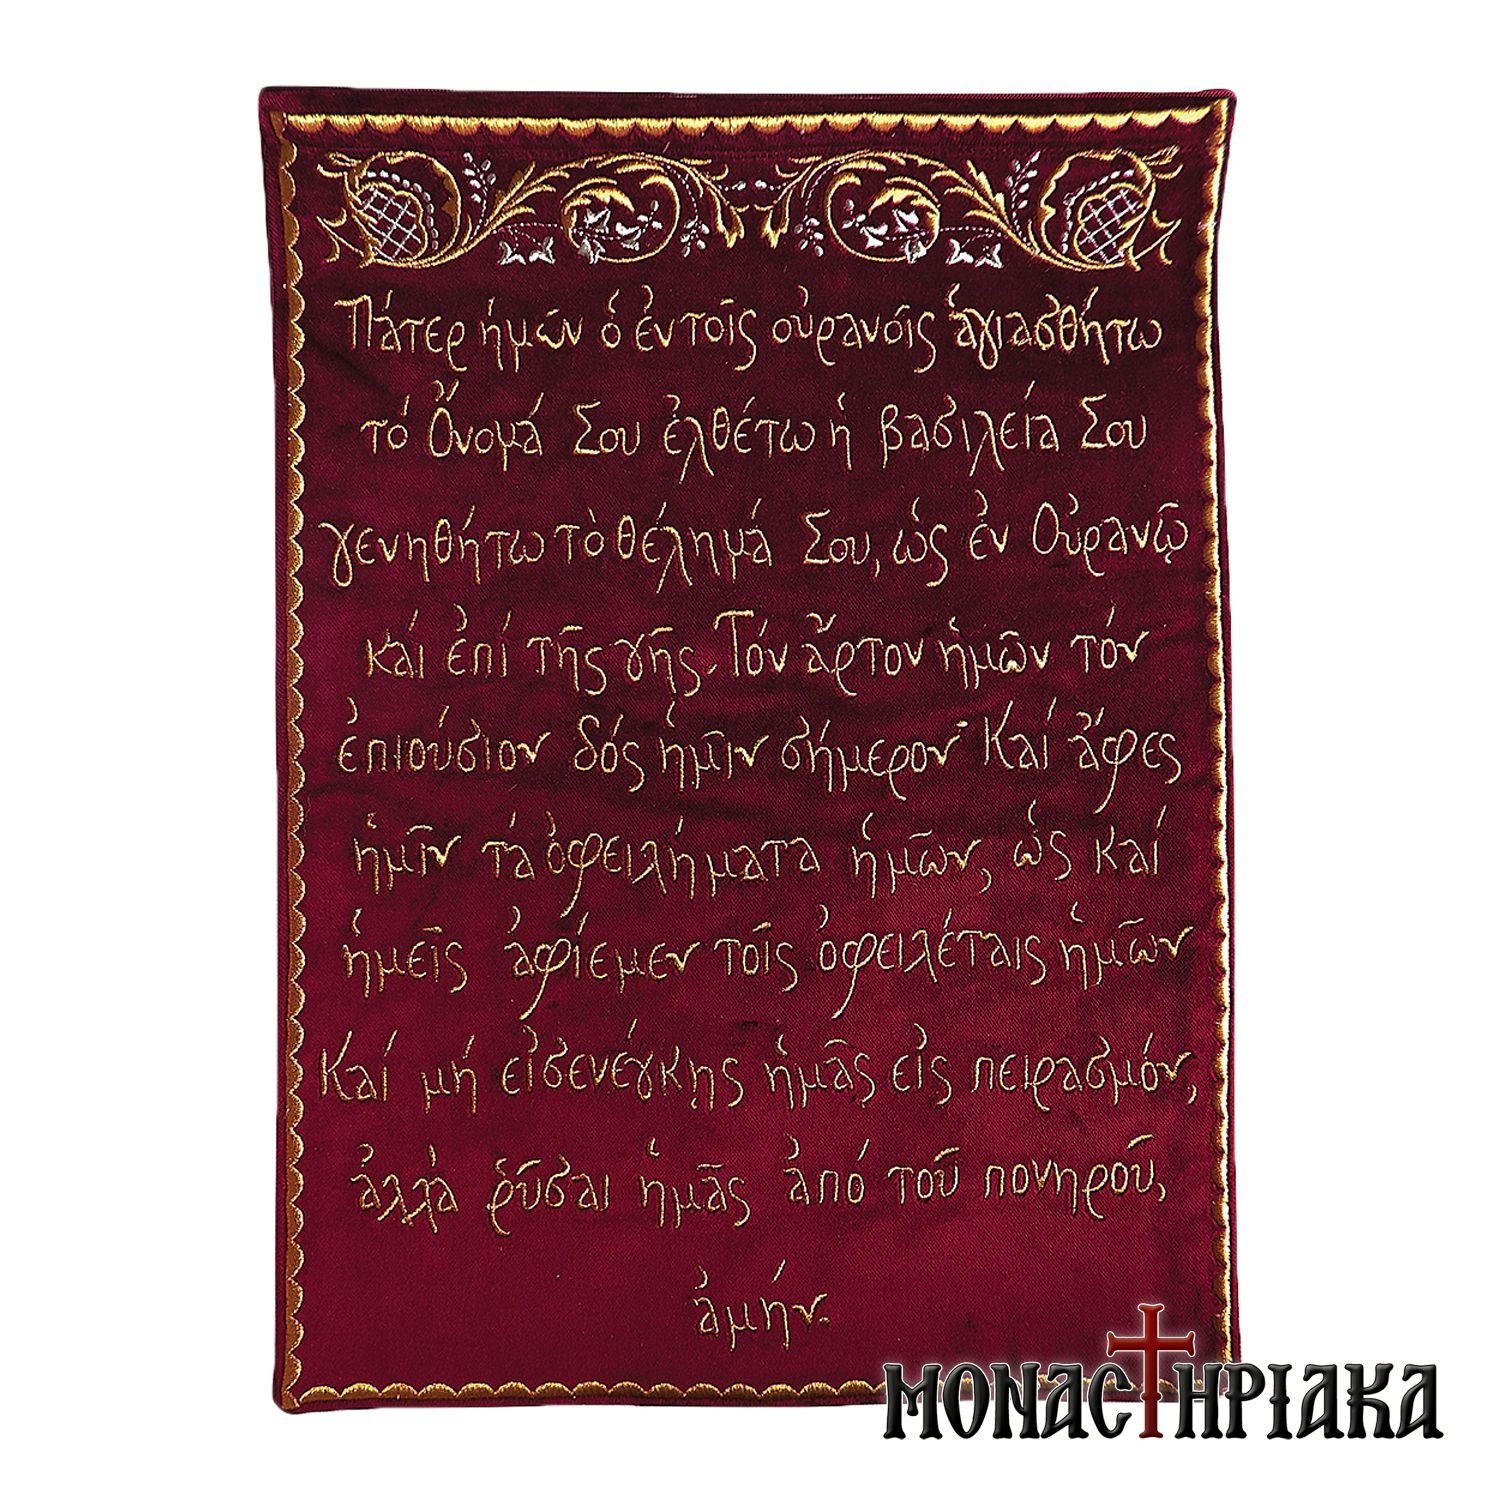 Πάτερ ἡμῶν ὁ ἐν τοῖς οὐρανοῖς ἁγιασθήτω
τό Ὄνομά Σου ἐλθέτω ἡ βασιλεία Σου
γενηθήτω τὸ θέλημά Σου, ὡς ἐν Οὐρανῷ
καί ἐπί τῆς γῆς. Τόν ἄρτον ἡμῶν τόν
ἐπιούσιον δός ἡμῖν σήμερον Καί ἄφες
ἡμῖν τά ὀφειλήματα ἡμῶν, ὡς καί
ἡμεῖς ἀφίεμεν τοῖς ὀφειλέταις ἡμῶν
Καί μή εἰσενέγκῃς ἡμᾶς εἰς πειρασμόν,
ἀλλὰ ῥῦσαι ἡμᾶς ἀπό τοῦ πονηροῦ,
ἀμήν.
ΜΟΝΑСΤΗΡΙΑΚΑ